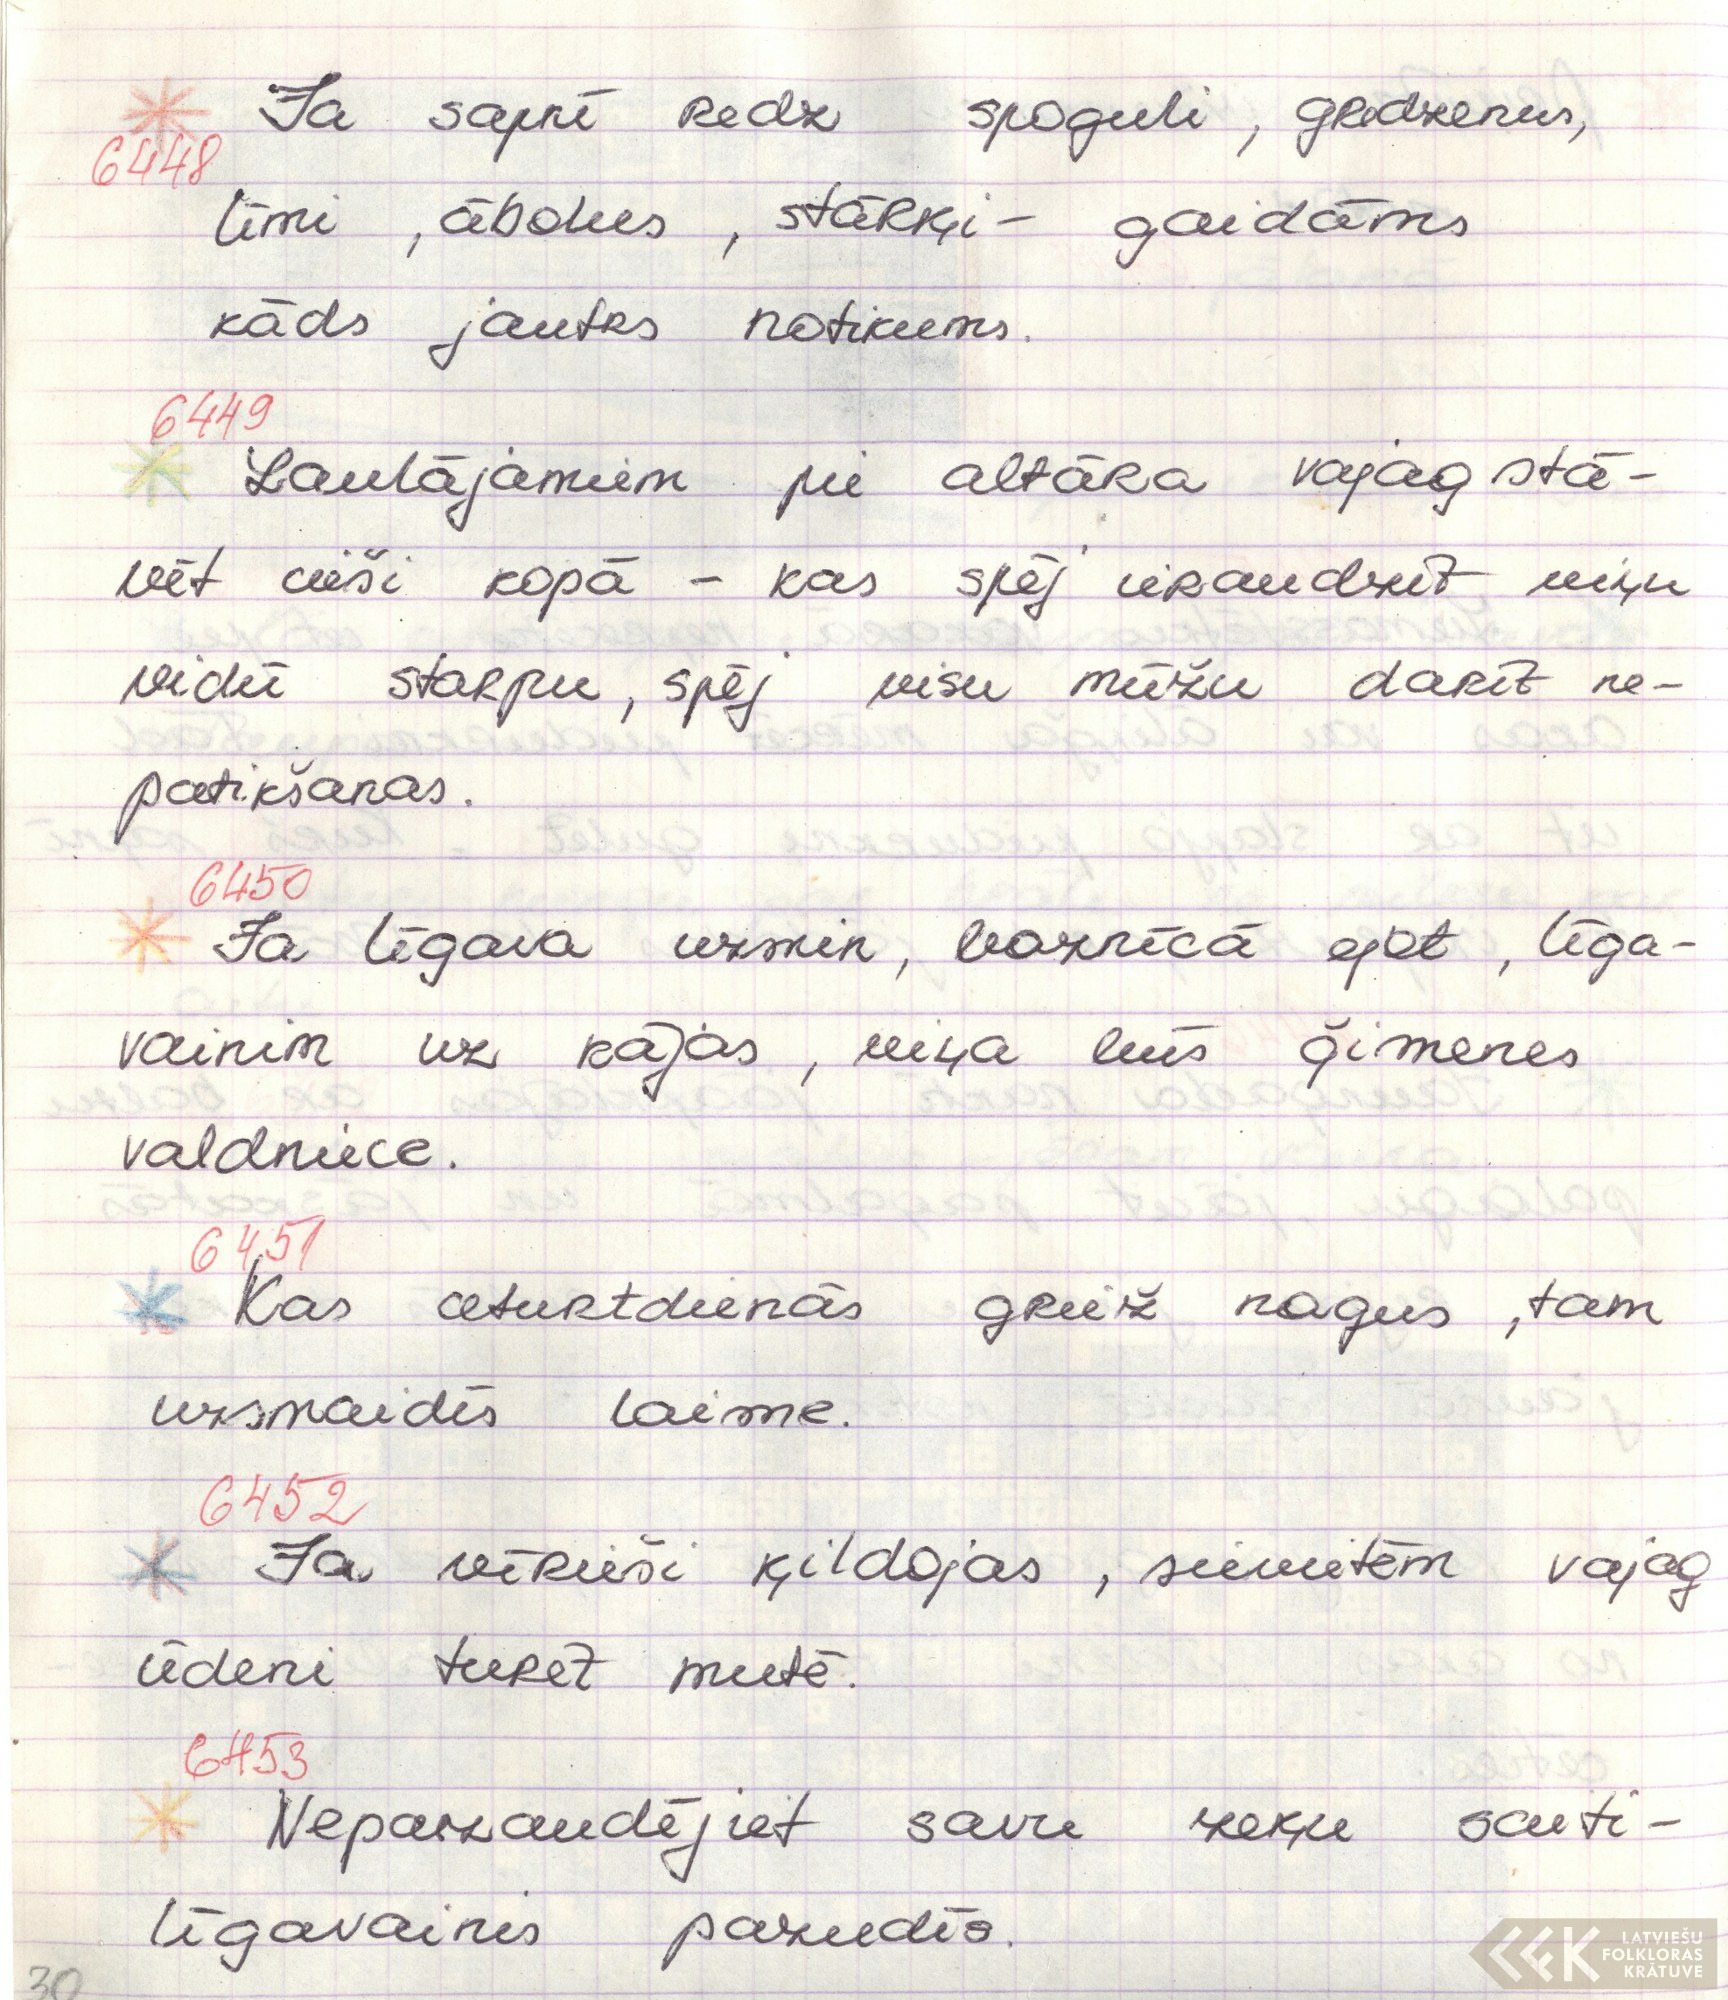 Ja sapnī redz spoguli, gredzenus,
6448
līmi, ābolus, stārķi - gaidāms
kāds jautrs notikums.
6449
Laulājamiem pie altāra vajag stā-
vēt cieši kopā - kas spēj ieraudzīt viņu
vidū starpu, spēj visu mūžu darīt ne-
patikšanas.
6450
Ja līgava uzmin, baznīcā ejot, līga-
vainim uz kājas, viņa būs ģimenes
valdniece.
6451
Kas ceturtdienās griež nagus, tam
uzsmaidīs laime.
6452
Ja vīrieši ķildojas, sievietēm vajag
ūdeni turēt mutē.
6453
Nepazaudējiet savu zeķu saiti -
līgavainis pazudīs.
30
LATVIEŠU
FOLKLORAS
KRĀTUVE